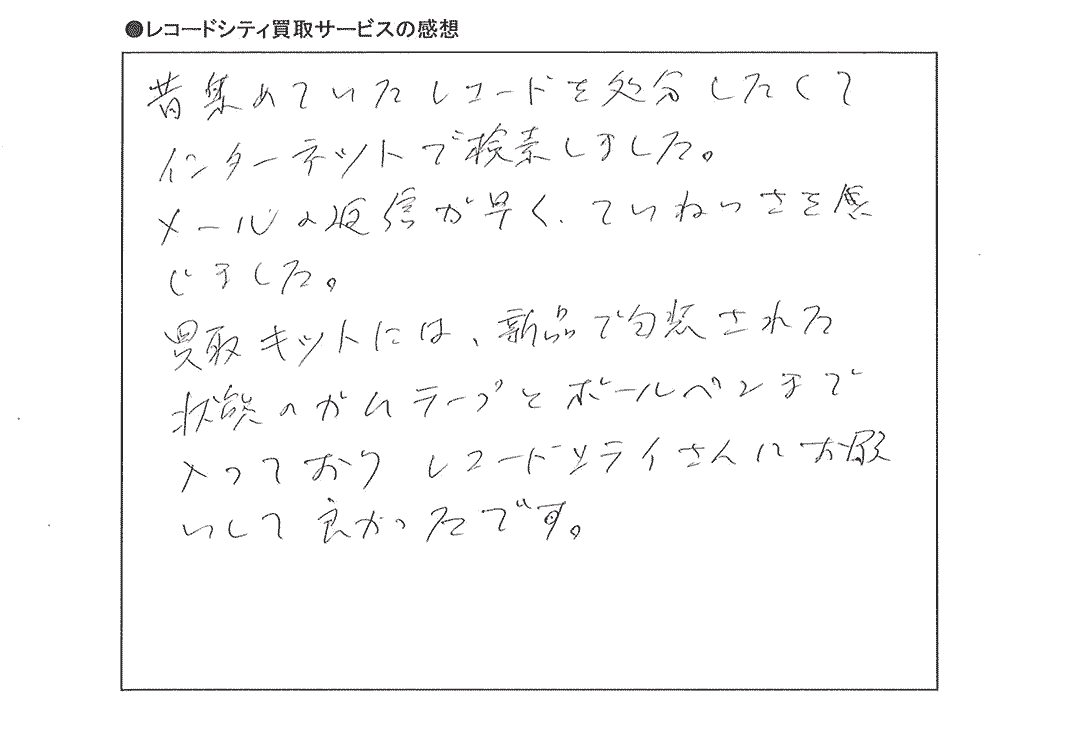 ●レコードシティ買取サービスの感想
昔集めていたレコードを処分したくて
インターネットで検索しました。
メールの返信が早く、ていねいさを感
じました。
買取キットには、新品で包装された
状態のガムテープとボールペンまで
入っており レコードシティさんにお願
いして良かったです。